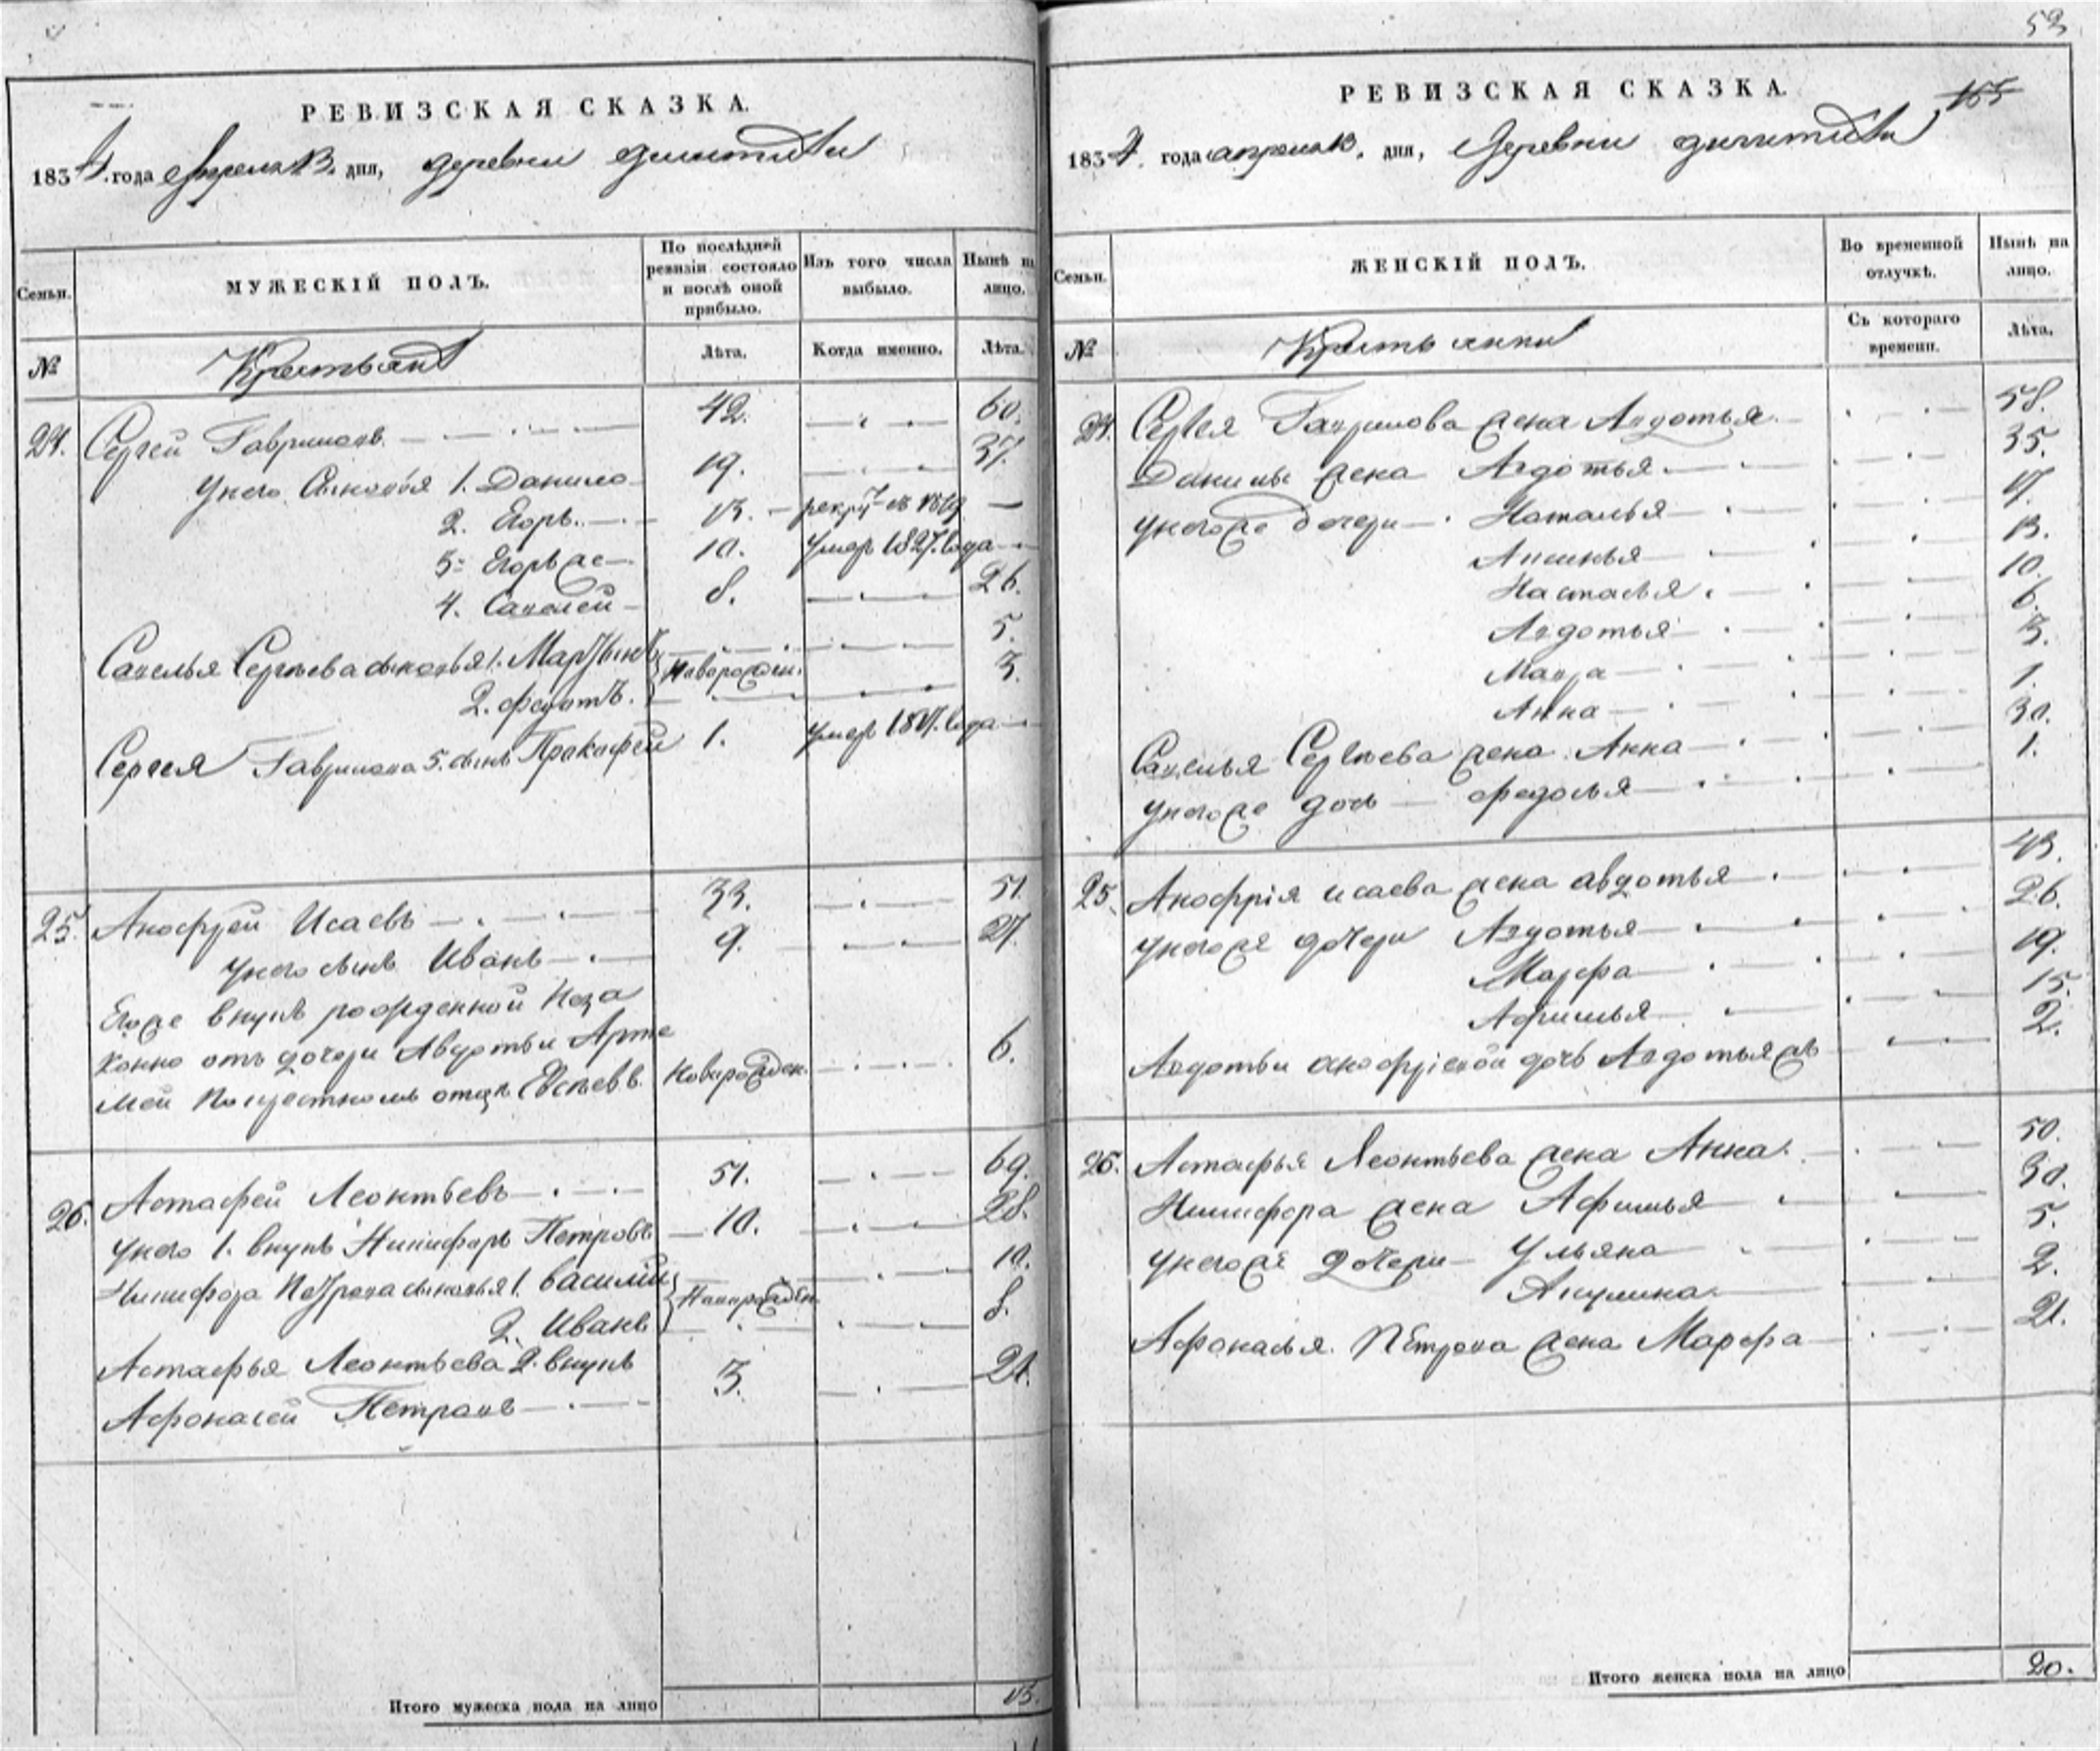 РЕВИЗСКАЯ СКАЗКА.
1834. года Апреля 13. дня, деревни
Семьи.
МУЖЕСКІЙ ПОЛЪ.
По послѣдней ревизіи состояло и послѣ оной прибыло.
Изъ того числа выбыло.
Нынѣ на лицо.
№
Крестьяне
Лѣта.
Когда именно.
Лѣта.
24. Сергей Гавриловъ 42. 60.
У него Сыновья 1. Данило 19. 37.
2. Егоръ 13. рекрут въ —
3. Егоръ же 10. умер 1827. года
4. Савелей 8. 26.
Савелья Сергѣева сыновья 1. Мартынъ 5.
новорожден.
2. федотъ. 3.
Сергея Гаврилова 5. сынъ Прокофей 1. умер года
25. Анофрей Исаевъ 33. 51.
У него сынъ Иванъ 9. 27.
Егоже внукъ рожденной Неза
конно отъ дочери Авдотьи Арте
мей отцъ новорожден. 6.
26. Астафей Леонтьевъ 51. 69.
У него 1. внукъ Никифоръ Петровъ 10. 28.
Никифора Петрова сыновья 1. Василий 10.
новорожден.
2. Иванъ 8.
Астафья Леонтьева 2. внукъ
Афонасей Петровъ 3. 21.
Итого мужеска пола на лицо 13.
53
165
РЕВИЗСКАЯ СКАЗКА.
1834. года апреля 13. дня, Деревни
Семьи.
ЖЕНСКІЙ ПОЛЪ.
Во временной отлучкѣ.
Нынѣ на лицо.
№
Крестьянки
Съ котораго времени.
Лѣта.
24. Сергея Гаврилова жена Авдотья 58.
Данилы жена Авдотья 35.
У негоже дочери Наталья 17.
Аксинья 13.
Настасья 10.
Авдотья 6.
Мавра 3.
Анна 1.
Савелья Сергѣева жена Анна 30.
У негоже дочь федосья 1.
25. Анофрія исаева жена авдотья 43.
У негоже дочери Авдотья 26.
Марфа 19.
Афимья 15.
Авдотьи анофріевой дочь Авдотья жъ 2.
26. Астафья Леонтьева жена Анна 50.
Никифора жена Афимья 30.
У негоже дочери Ульяна 5.
Акулина 2.
Афонасья Петрова жена Марфа 21.
Итого женска пола на лицо 20.